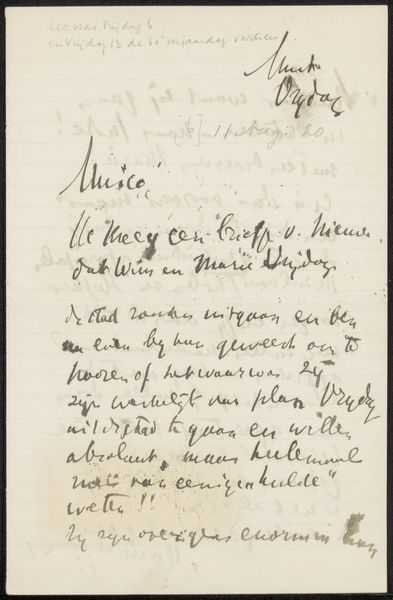 het was Vrijdag 6
en Vrijdag 13 de 60e verjaardag v Witsen.
Vrydag
11 Aug. 20
Ik kreeg een briefje v.
dat Wim en Marie Vrijdag
de stad zouden uitgaan en ben
even by hun geweest om te
hooren of het waar was Zij
zijn werkelijk van plan Vrydag
uit de stad te gaan en willen
absoluut, maar heelemaal
niets van "eenige hulde"
weten!!
Zij zyn overigens enorm